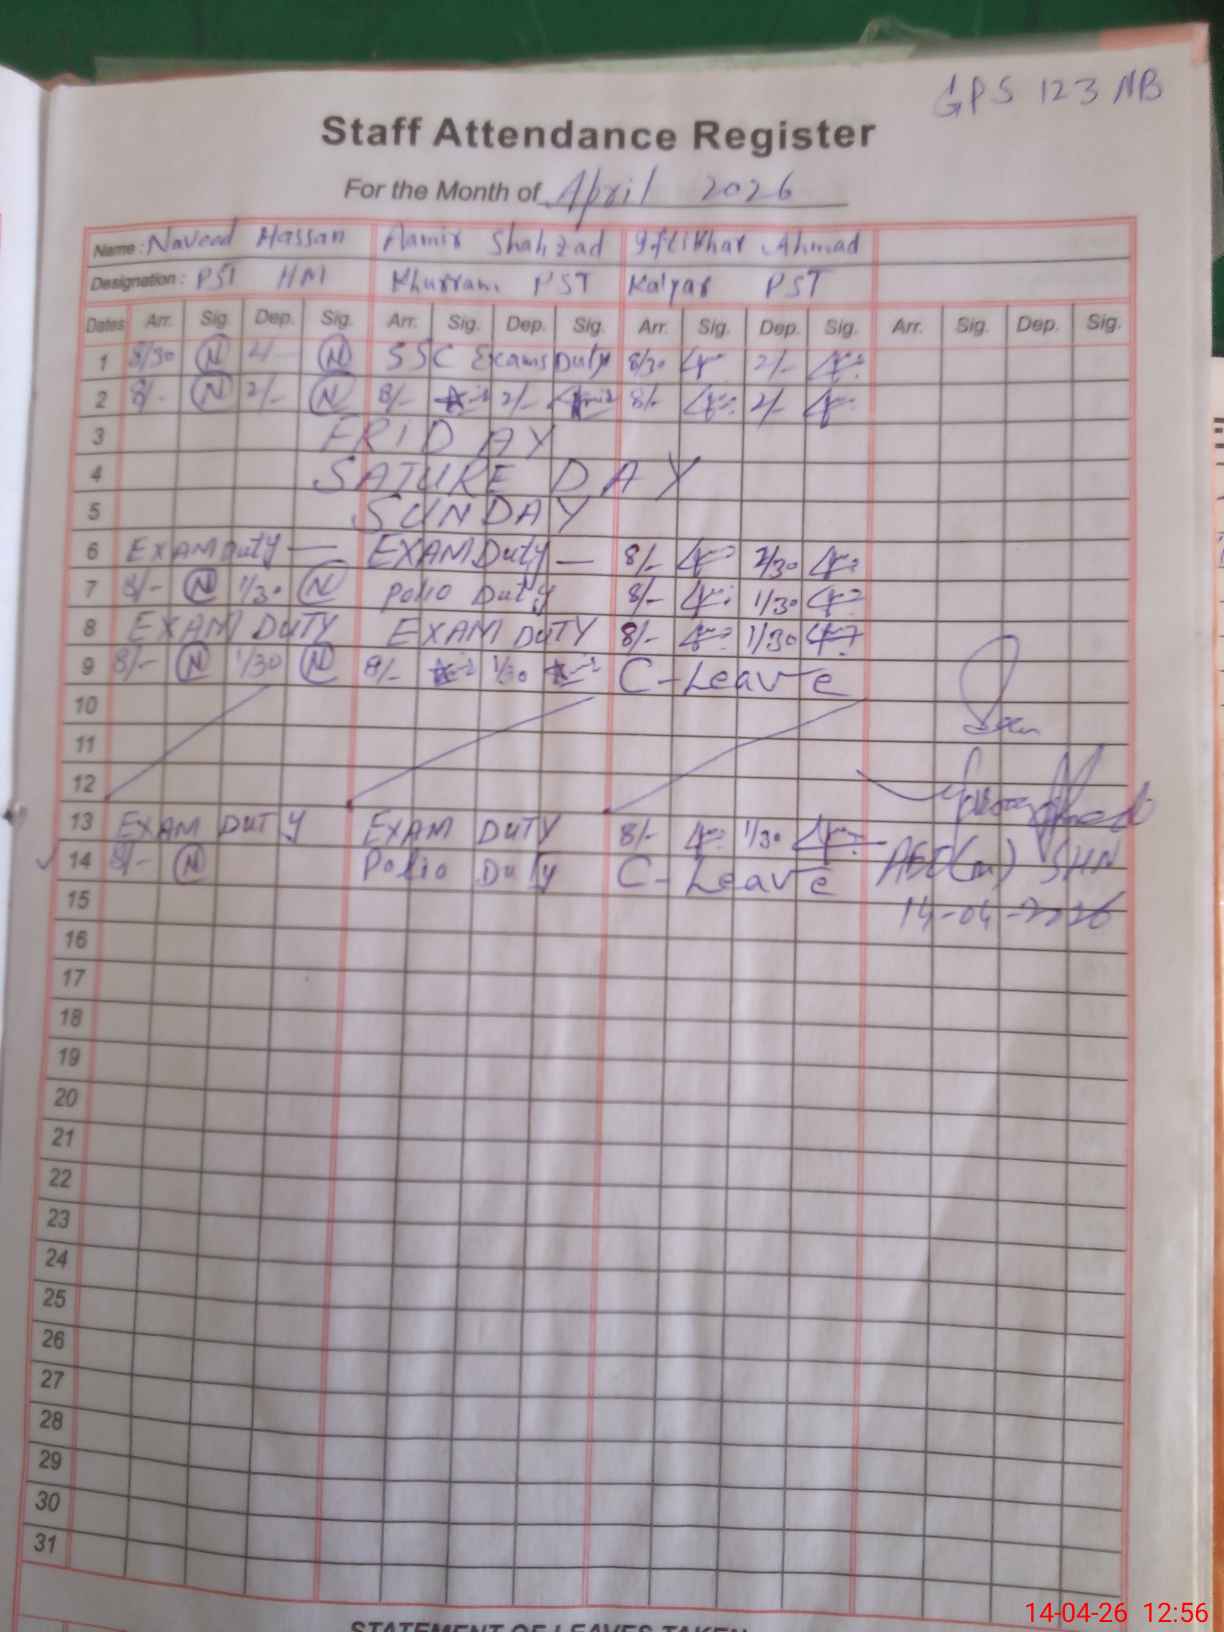 GPS 123 NB
Staff Attendance Register
For the Month of April 2026
Name: Naveed Hassan Aamir Shahzad Iftikhar Ahmad
Designation: PST HM Khurram PST Kalyar PST
Dates Arr. Sig. Dep. Sig. Arr. Sig. Dep. Sig. Arr. Sig. Dep. Sig. Arr. Sig. Dep. Sig.
1 8/30 N 2/- N SSC Exams Duty 8/30 2/-
2 8/- N 2/- N 8/- 2/- 8/- 2/-
3 FRIDAY
4 SATUREDAY
5 SUNDAY
6 EXAM Duty — EXAM Duty — 8/- 2/30
7 8/- N 1/30 N Polio Duty 8/- 1/30
8 EXAM DUTY EXAM DUTY 8/- 1/30
9 8/- N 1/30 N 8/- 1/30 C-Leave
10
11
12
13 EXAM DUTY EXAM DUTY 8/- 1/30
14 8/- N Polio Duty C-Leave AEO(m) SHN
15 14-04-2026
16
17
18
19
20
21
22
23
24
25
26
27
28
29
30
31
STATEMENT OF LEAVES TAKEN
14-04-26 12:56